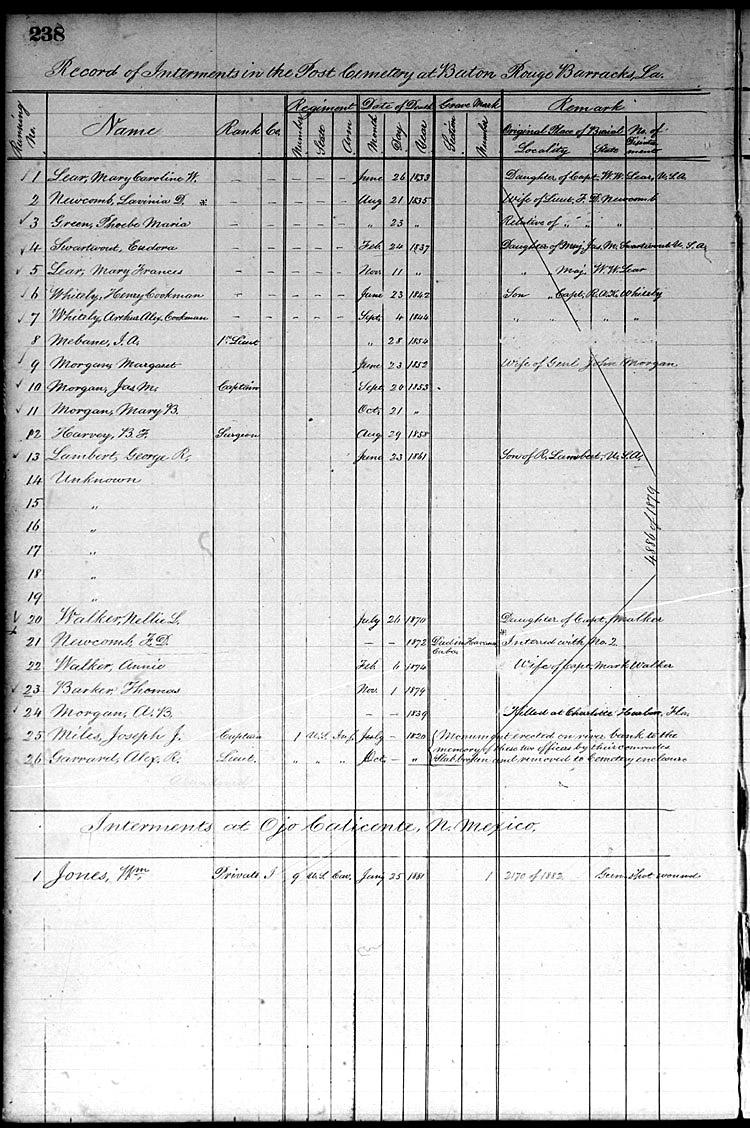 238
Record of Interments in the Post Cemetery at Baton Rouge Barracks, La.
Running No. Name Rank Co. Regiment Date of Death Grave Mark Remark
Number State Arm Month Day Year Section Number Original Place of Burial No. of
Locality State
1 Lear, Mary Caroline W. - - - - - June 26 1833 Daughter of Capt. W. W. Lear, U.S.A.
2 Newcomb, Lavinia D. * - - - - - Aug 21 1835 Wife of Lieut. F. D. Newcomb
3 Green, Phoebe Maria - - - - - " 23 " Relative of " " "
4 Swartwout, Eudora - - - - - Feb. 24 1837 Daughter of Maj. Jas. M. Swartwout U.S.A.
5 Lear, Mary Frances - - - - - Nov. 11 " " Maj. W. W. Lear
6 Whitely, Henry Cookman - - - - - June 23 1842 Son " Capt. R. H. K. Whitely
7 Whitely, Arthur Alex. Cookman - - - - - Sept. 4 1844 " " " " "
8 Mebane, J. A. 1st Lieut " 28 1854
9 Morgan, Margaret June 23 1852 Wife of Genl John Morgan.
10 Morgan, Jas M. Captain Sept. 20 1853
11 Morgan, Mary B. Oct. 21 "
12 Harvey, B. F. Surgeon Aug 29 1858
13 Lambert, George R. June 23 1861 Son of R. Lambert, U.S.A.
14 Unknown
15 "
16 "
17 "
18 "
19 "
4886 of 1879
20 Walker, Nellie L. July 26 1870 Daughter of Capt. Walker
21 Newcomb, F. D. - - 1872 Died in Havana Cuba * Interred with No. 2
22 Walker, Annie Feb 6 1874 Wife of Capt. Mark Walker
23 Barker, Thomas Nov. 1 1879
24 Morgan, A. B. - - 1839 Killed at Charlotte Harbor, Fla.
25 Miles, Joseph J. Captain 1 U.S. Inf. July - 1820 { Monument erected on river bank to the
memory of these two officers by their comrades
26 Garrard, Alex. R. Lieut. " " " Oct. - " Slab broken and removed to Cemetery enclosure
Interments at Ojo Calicente, N. Mexico.
1 Jones, Wm Private I 9 U.S. Cav. Jany 25 1881 1 2170 of 1882 Gun shot wound